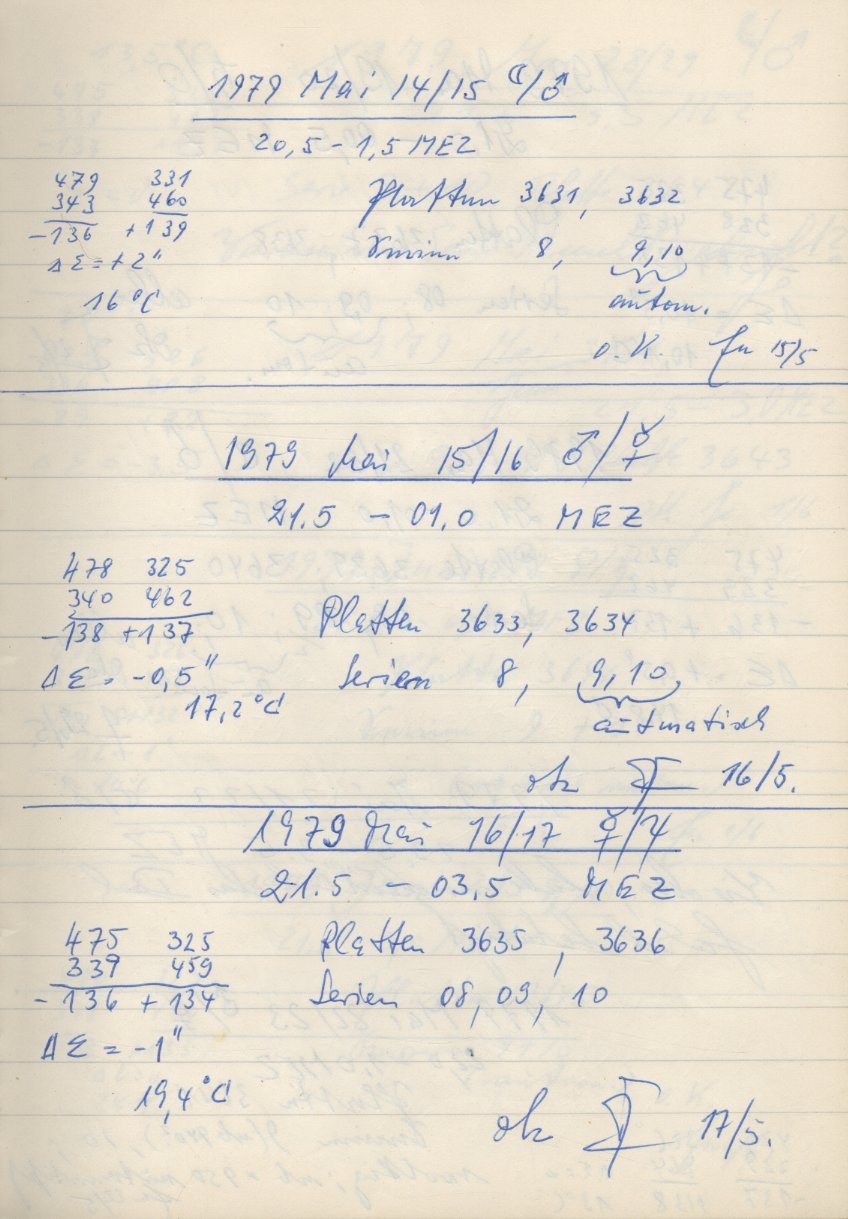 1979 Mai 14/15 ☾/♂
20,5 – 1,5 MEZ
479 331
343 460
-136 +139
ΔΣ = +2"
16 °C
Platten 3631, 3632
Serien 8, 9,10
autom.
o.K. 15/5
1979 Mai 15/16 ♂/☿
21.5 – 01,0 MEZ
478 325
340 462
-138 +137
ΔΣ = -0,5"
17,2 °C
Platten 3633, 3634
Serien 8, 9,10,
automatisch
ok 16/5.
1979 Mai 16/17 ☿/♃
21.5 – 03,5 MEZ
475 325
339 459
-136 +134
ΔΣ = -1"
19,4 °C
Platten 3635, 3636
Serien 08, 09, 10
ok 17/5.